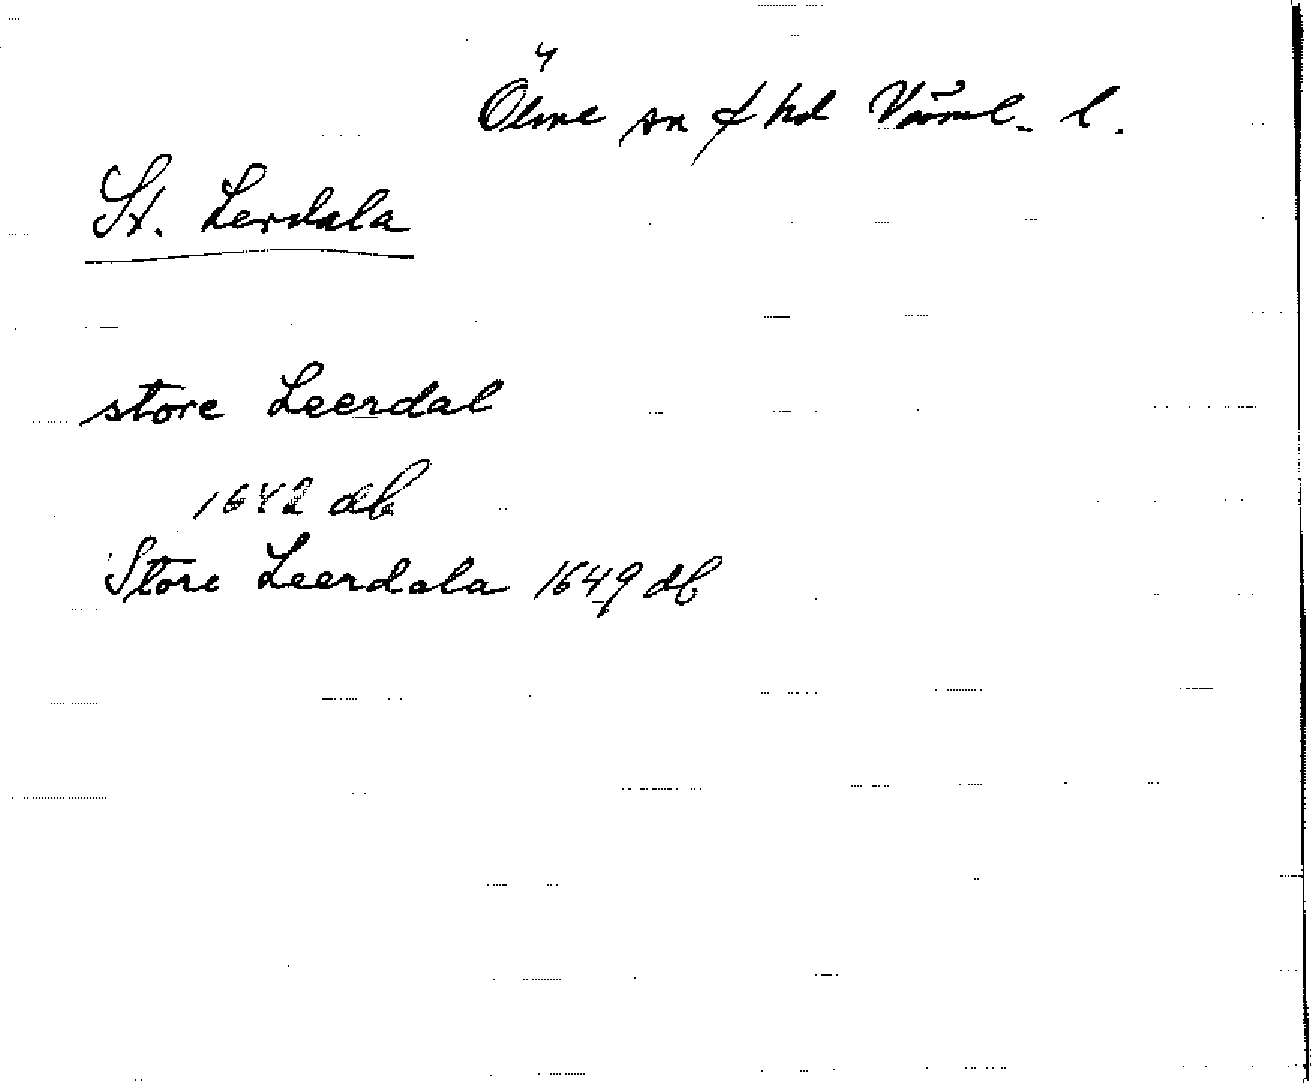 Ölme sn & hd Värml. l.
St. Lerdala
store Leerdal
1642 db
Store Leerdala 1649 db